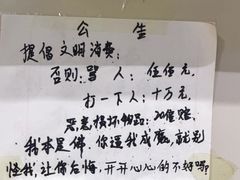 公告
提倡文明消费:
否则:骂 人: 伍佰元,
打一下人: 十万元,
恶意损坏物品: 20倍赔,
我本是佛, 你逼我成魔, 就别
怪我, 让你后悔, 开开心心的不好吗?